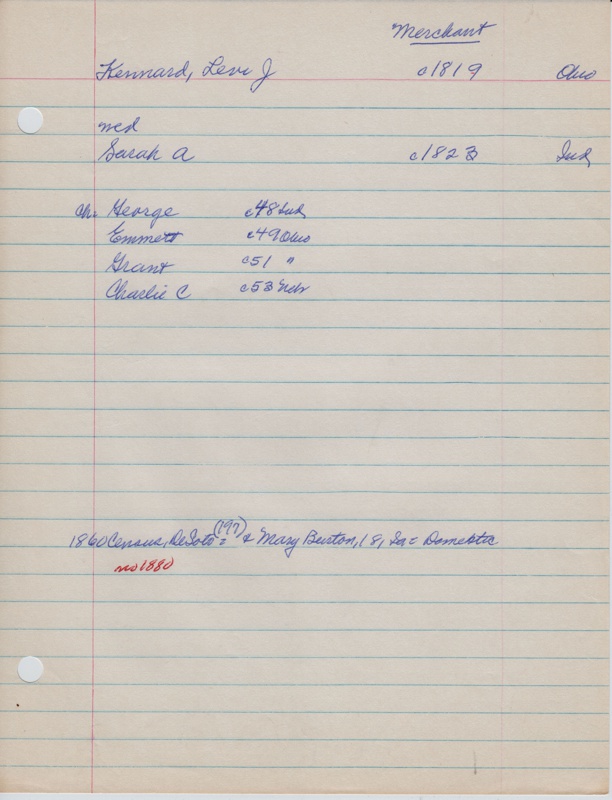 Merchant
Kennard, Levi J c1819 Ohio
md
Sarah A c1823 Ind
Ch: George c48 Ind
Emmett c49 Ohio
Grant c51 "
Charlie C c53 Nebr
(197)
1860 Census, DeSoto = & Mary Burton, 18, Ia = Domestic
no 1880